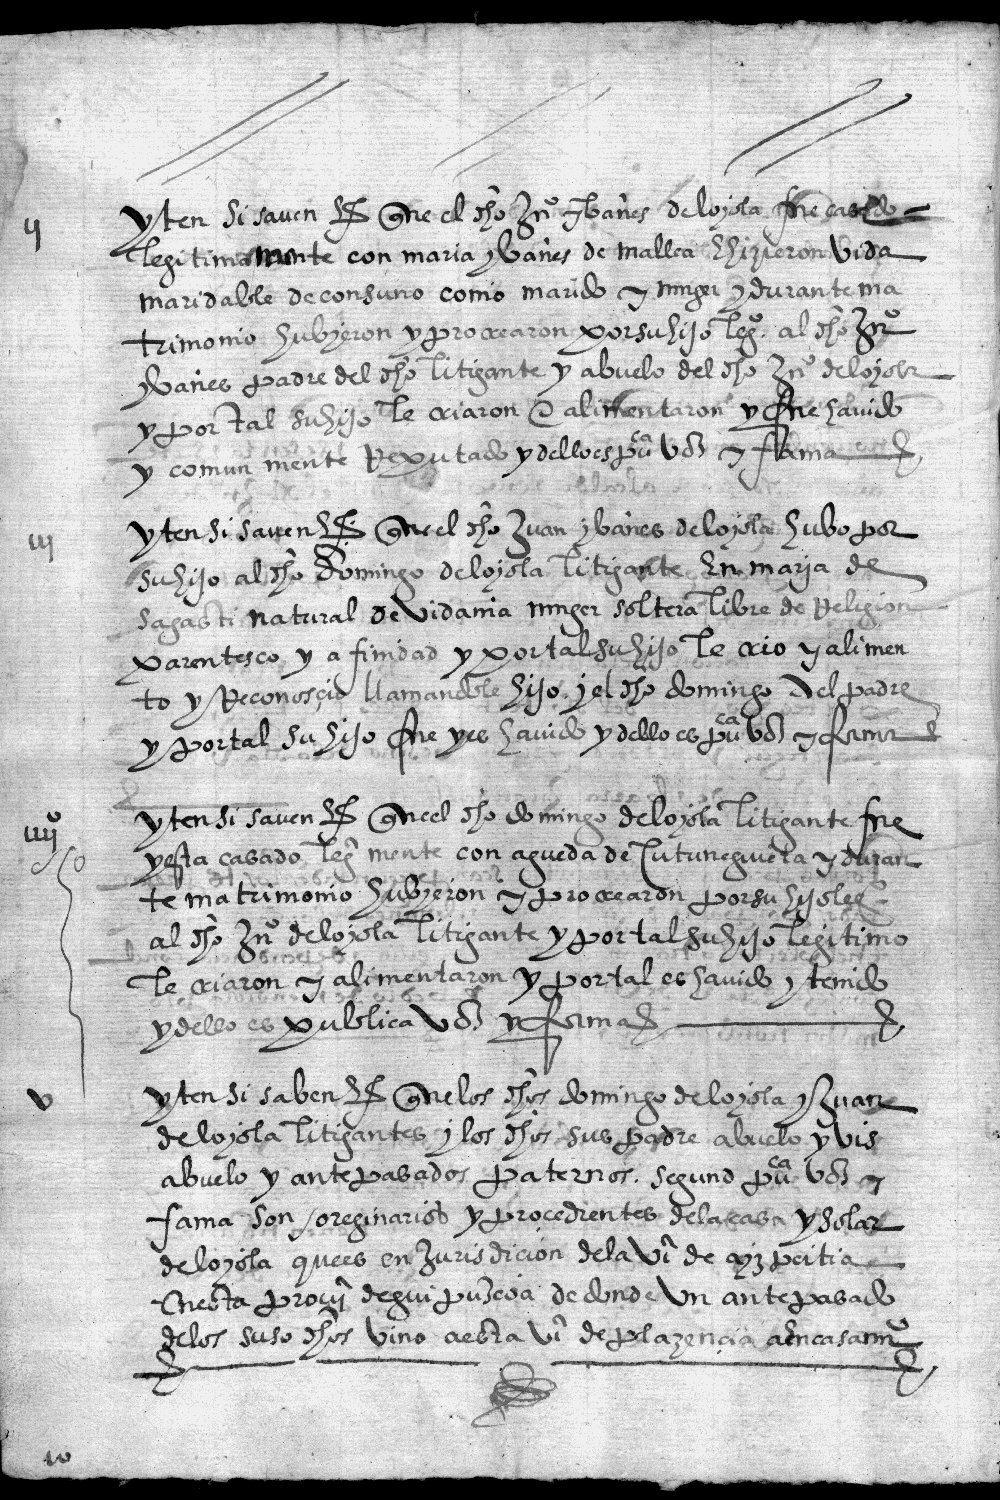 ij
yten si saven &c que el dho Juº ybañes de loyola fue casado
legitimamente con maria ybañes de mallea E hizieron vida
maridable de consuno como marido y muger y durante ma
trimonio hubyeron y procrearon por su hijo legº al dho Juº
ybañes padre del dho litigante y abuelo del dho Juº de loyola
y por tal su hijo le criaron E alimentaron y fue havido
y comun mente Reputado y dello es puca voz y fama
iij
yten si saven &c que el dho Juan ybañes de loyola hubo por
su hijo al dho domingo de loyola litigante En maria de
sagasti natural de vidania muger soltera libre de Religion
parentesco y afinidad y por tal su hijo le crio y alimen
to y Reconoscio llamandole hijo y el dho domingo a el padre
y por tal su hijo fue y es havido y dello es puca voz y fama
iiijº
yten si saven &c que el dho domingo de loyola litigante fue
y esta casado legi mente con agueda de lutuneguieta y duran
te matrimonio hubyeron y procrearon por su hijo legº
al dho Juº de loyola litigante y por tal su hijo legitimo
le criaron y alimentaron y por tal es havido y tenido
y dello es publica voz y fama
v
yten si saben &c que los dhos domingo de loyola y Juan
de loyola litigantes y los dhos sus padre abuelo y vis
abuelo y antepasados paternos segund puca voz y
fama son oreginarios y procedientes de la casa y solar
de loyola que es en Jurisdicion de la vi de ayzpeitia
En esta provi de guipuzcoa de donde un antepasado
de los suso dhos vino a esta vi de plazencia a En casamiº